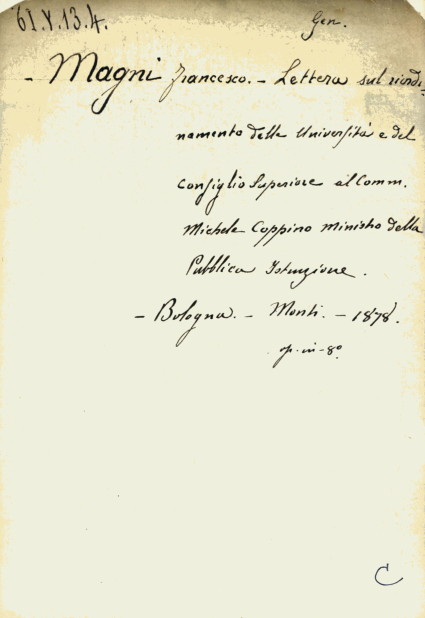 61.V.13.4.
Gen.
- Magni Francesco. - Lettera sul riordi=
namento delle Università e del
Consiglio Superiore al Comm.
Michele Coppino Ministro della
Pubblica Istruzione.
- Bologna. - Monti. - 1878.
op. in-8°
C